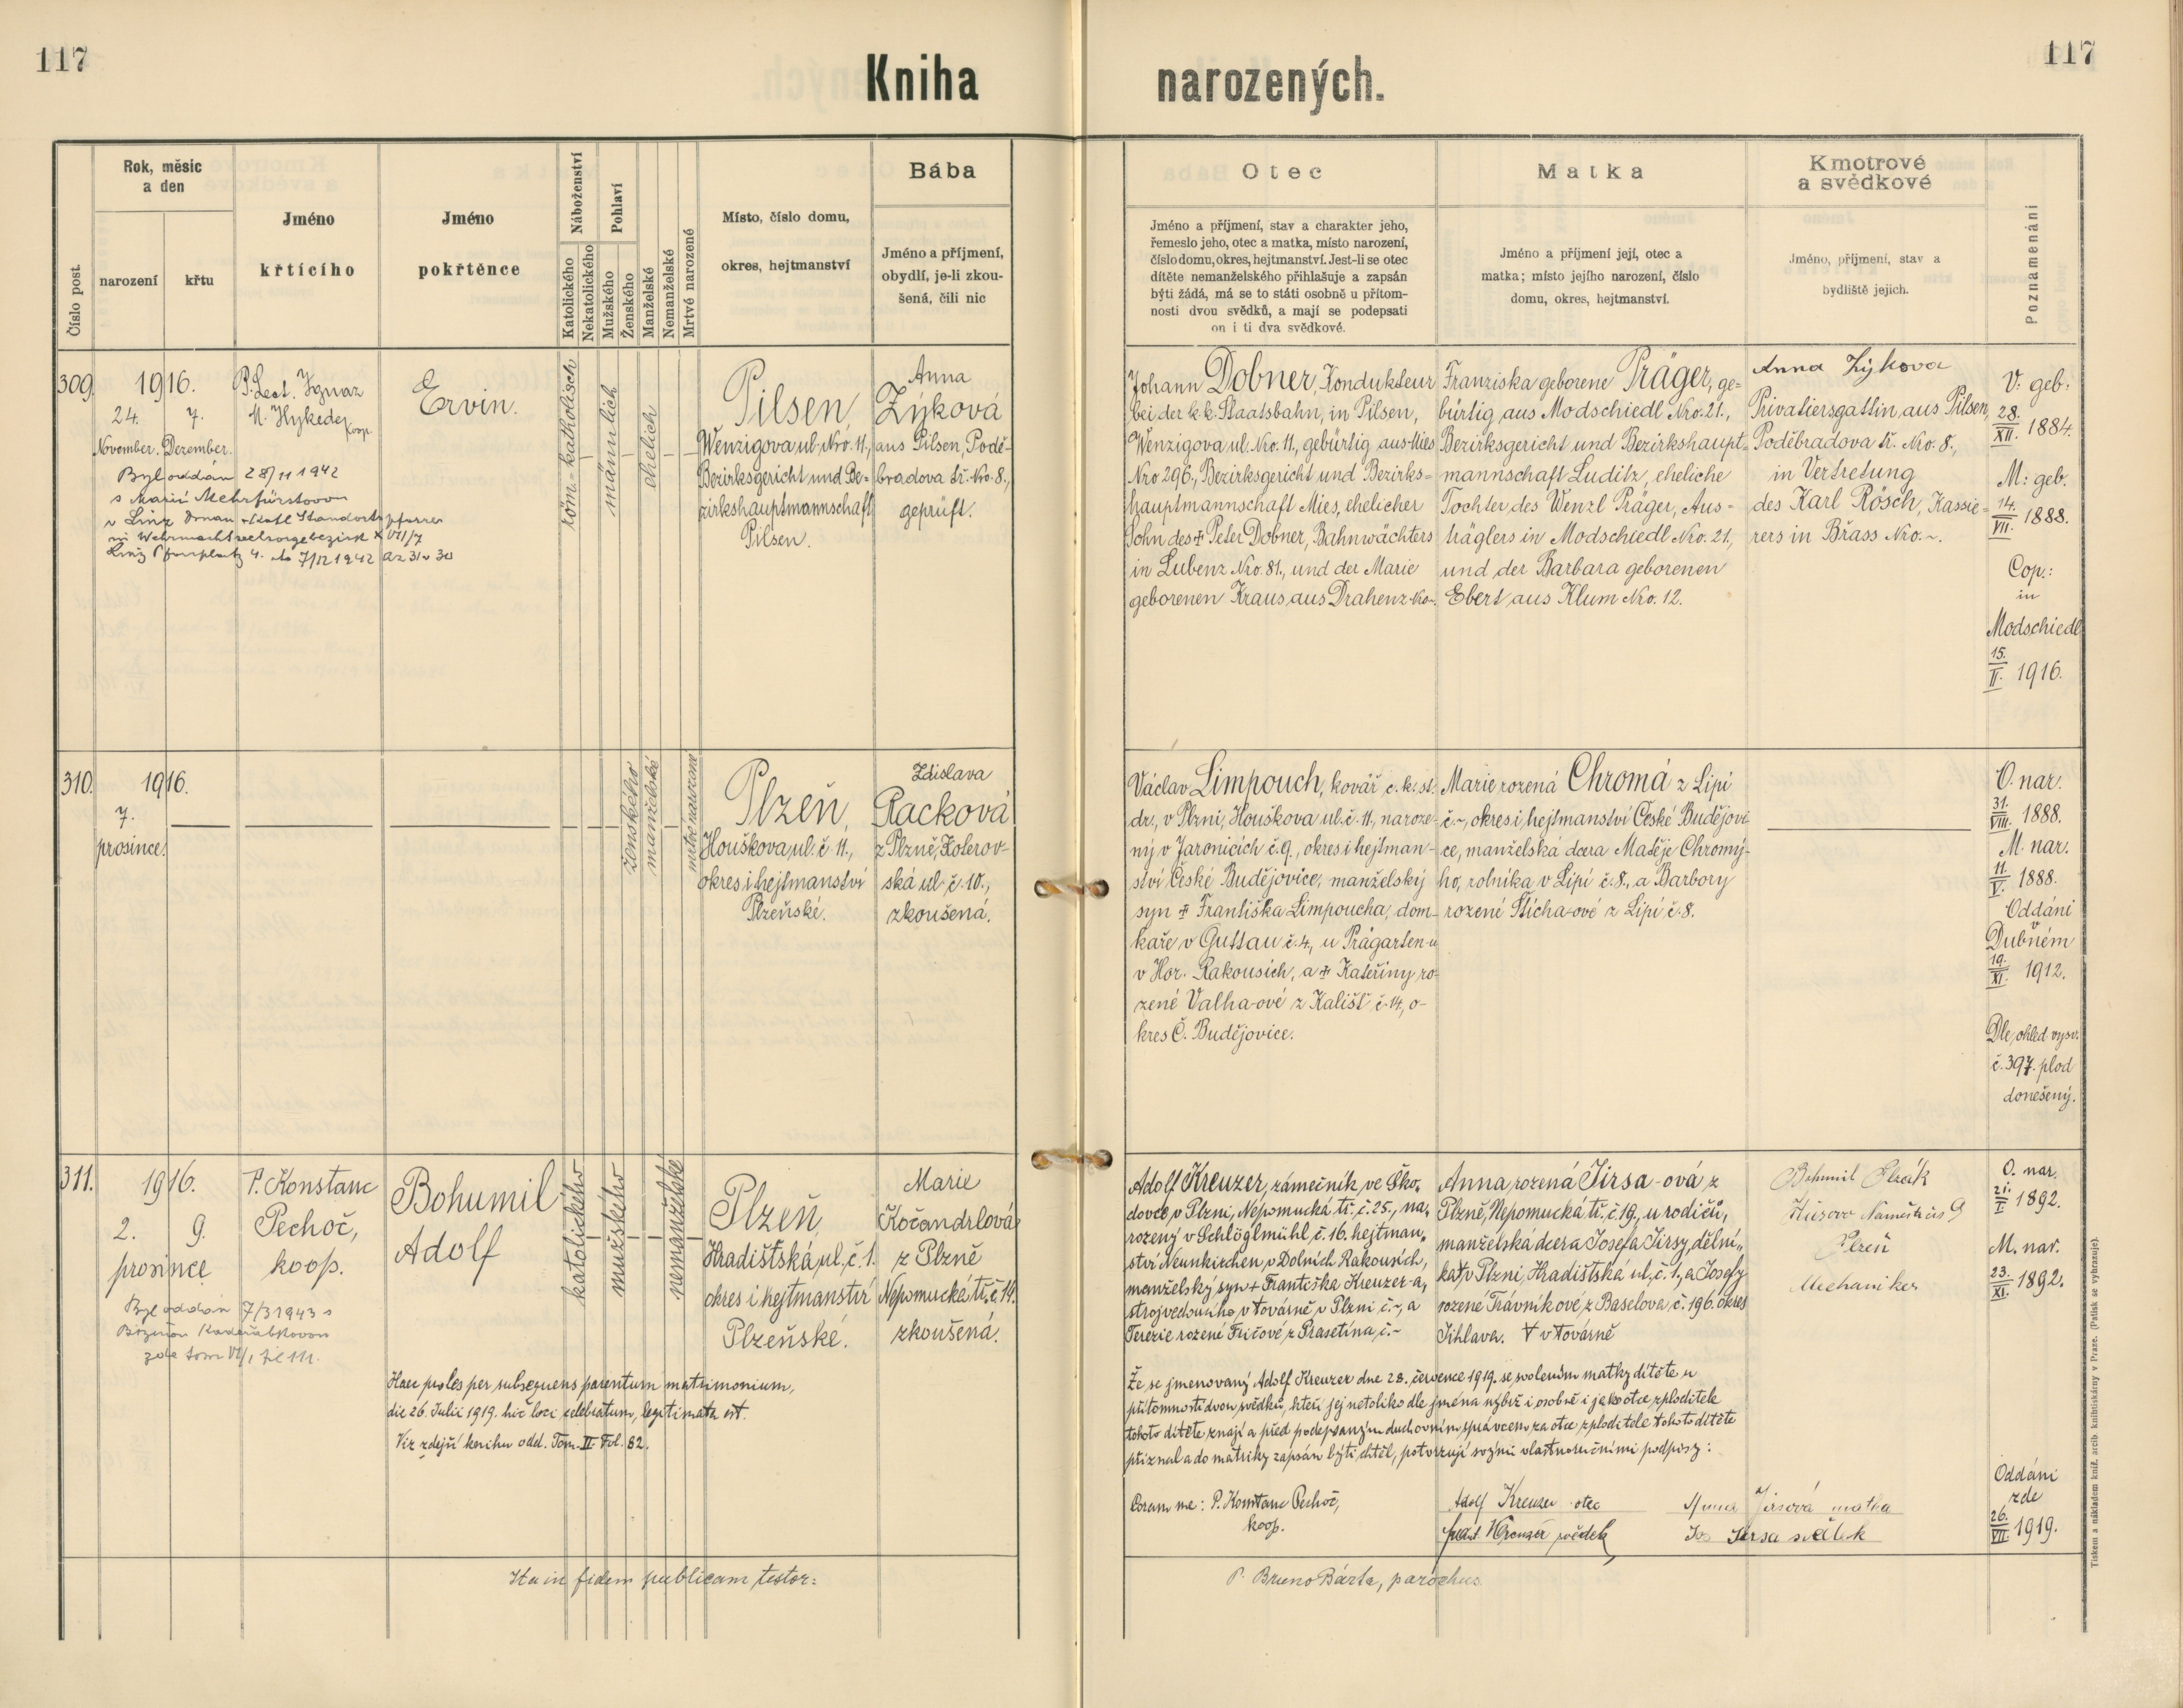 117
Kniha narozených.
117
Číslo post.
Rok, měsíc
a den
narození
křtu
Jméno
křtícího
Jméno
pokřtěnce
Náboženství
Katolického
Nekatolického
Pohlaví
Mužského
Ženského
Manželské
Nemanželské
Mrtvé narozené
Místo, číslo domu,
okres, hejtmanství
Bába
Jméno a příjmení,
obydlí, je-li zkou-
šená, čili nic
Otec
Jméno a příjmení, stav a charakter jeho,
řemeslo jeho, otec a matka, místo narození,
číslo domu, okres, hejtmanství. Jest-li se otec
dítěte nemanželského přihlašuje a zapsán
býti žádá, má se to státi osobně u přítom-
nosti dvou svědků, a mají se podepsati
on i ti dva svědkové.
Matka
Jméno a příjmení její, otec a
matka; místo jejího narození, číslo
domu, okres, hejtmanství.
Kmotrové
a svědkové
Jméno, příjmení, stav a
bydliště jejich.
Poznamenání
309.
1916.
24. 7.
November. Dezember.
Byl oddán 28/11 1942
s Marií Mehrfürstovou
v Linz Donau
Linz Pfarrplatz 4. 7/12 1942 Az 31 v 30
P. Lect. Ignaz
M. Hykede
Koop.
Ervin.
röm.-katholisch
männlich
ehelich
Pilsen,
Wenzigova ul. Nro. 11.,
Bezirksgericht und Be-
zirkshauptmannschaft
Pilsen.
Anna
Zýková
aus Pilsen, Podě-
bradova tř. Nro. 8.,
geprüft.
Johann Dobner, Kondukteur
bei der k.k. Staatsbahn, in Pilsen,
Wenzigova ul. Nro. 11., gebürtig aus Mies
Nro 296., Bezirksgericht und Bezirks=
hauptmannschaft Mies, ehelicher
Sohn des ✝ Peter Dobner, Bahnwächters
in Lubenz Nro. 81., und der Marie
geborenen Kraus, aus Drahenz Nro ~.
Franziska geborene Präger, ge=
bürtig aus Modschiedl Nro. 21.,
Bezirksgericht und Bezirkshaupt=
mannschaft Luditz, eheliche
Tochter des Wenzl Präger, Aus-
träglers in Modschiedl Nro. 21.,
und der Barbara geborenen
Ebert aus Klum Nro. 12.
Anna Zýkova
Privatiersgattin aus Pilsen,
Poděbradova tř. Nro. 8.,
in Vertretung
des Karl Rösch, Kassie=
rers in Břass Nro. ~.
V: geb:
28.
XII. 1884.
M: geb.
14.
VII. 1888.
Cop.:
in
Modschiedl
15.
II. 1916.
310.
1916.
7.
prosince.
ženského
manželské
mrtvě narozené
Plzeň,
Houškova ul. č. 11.,
okres i hejtmanství
Plzeňské.
Zdislava
Racková
z Plzně, Kolerov-
ská ul. č. 10.,
zkoušená.
Václav Limpouch, kovář c. k. st.
dr., v Plzni, Houškova ul. č. 11, naroze-
ný v Jaronicích č. 9., okres i hejtman-
ství České Budějovice, manželský
syn ✝ Františka Limpoucha, dom-
kaře v Guttau č. 4., u Prägarten-u
v Hor. Rakousích, a ✝ Kateřiny, ro-
zené Valha-ové z Kališť č. 14, o-
kres Č. Budějovice.
Marie rozená Chromá z Lipí
č. ~, okres i hejtmanství České Budějovi-
ce, manželská dcera Matěje Chromý-
ho, rolníka v Lipí č. 8., a Barbory
rozené Šticha-ové z Lipí č. 8.
O. nar.
31.
VIII. 1888.
M. nar.
11.
V. 1888.
Oddáni
v
Dubném
19.
XI. 1912.
Dle ohled. vysv.
č. 397. plod
donešený.
311.
1916.
2. 9.
prosince
Byl oddán 7/3 1943 s
Boženou Kadeřábkovou
zde tom VI/1 fol 111.
P. Konstanc
Pechoč,
koop.
Bohumil
Adolf
katolického
mužského
nemanželské
Plzeň,
Hradišťská ul. č. 1.
okres i hejtmanství
Plzeňské.
Marie
Kočandrlová
z Plzně
Nepomucká tř. č. 14.
zkoušená.
Adolf Kreuzer, zámečník ve Ško-
dovce v Plzni, Nepomucká tř. č. 25., na-
rozený v Schlöglmühl, č. 16. hejtman-
ství Neunkirchen, v Dolních Rakousích,
manželský syn + Františka Kreuzer-a,
strojvedoucího v továrně v Plzni č. ~, a
Terezie rozené Fričové z Prasetína, č. ~
Anna rozená Jirsa-ová z
Plzně, Nepomucká tř. č. 19., u rodičů,
manželská dcera Josefa Jirsy, dělní-
ka ∀, v Plzni, Hradištská ul., č. 1., a Josefy
rozené Trávníkové, z Baselova, č. 196. okres
Jihlava. ∀ v továrně
Bohumil Plzák
Húsovo Naměstí čís 9
Plzeň
Mechaniker
O. nar.
21.
I. 1892.
M. nar.
23.
XI. 1892.
Haec proles per subsequens parentum matrimonium,
die 26. Julii 1919. hic loci celebratum, legitimata est.
Viz zdejší knihu odd. Tom. II. Fol. 82.
Že se jmenovaný Adolf Kreuzer dne 28. července 1919. se svolením matky dítěte u
přítomnosti dvou svědků, kteří jej netoliko dle jména nýbrž i osobně i jako otce zploditele
tohoto dítěte znají a před podepsaným duchovním správcem za otce zploditele tohoto dítěte
přiznal a do matriky zapsán býti chtěl, potvrzují svými vlastnoručními podpisy:
Coram me: P. Konstanc Pechoč,
koop.
Adolf Kreuzer otec
Anna Jirsová matka
Frant. Kreuzer svědek
Jos Jirsa svědek
Oddáni
zde
26.
VII. 1919.
Ita in fidem publicam testor:
P. Bruno Bárta, parochus
Tiskem a nákladem kníž. arcib. knihtiskárny v Praze. (Patisk se vyhrazuje).